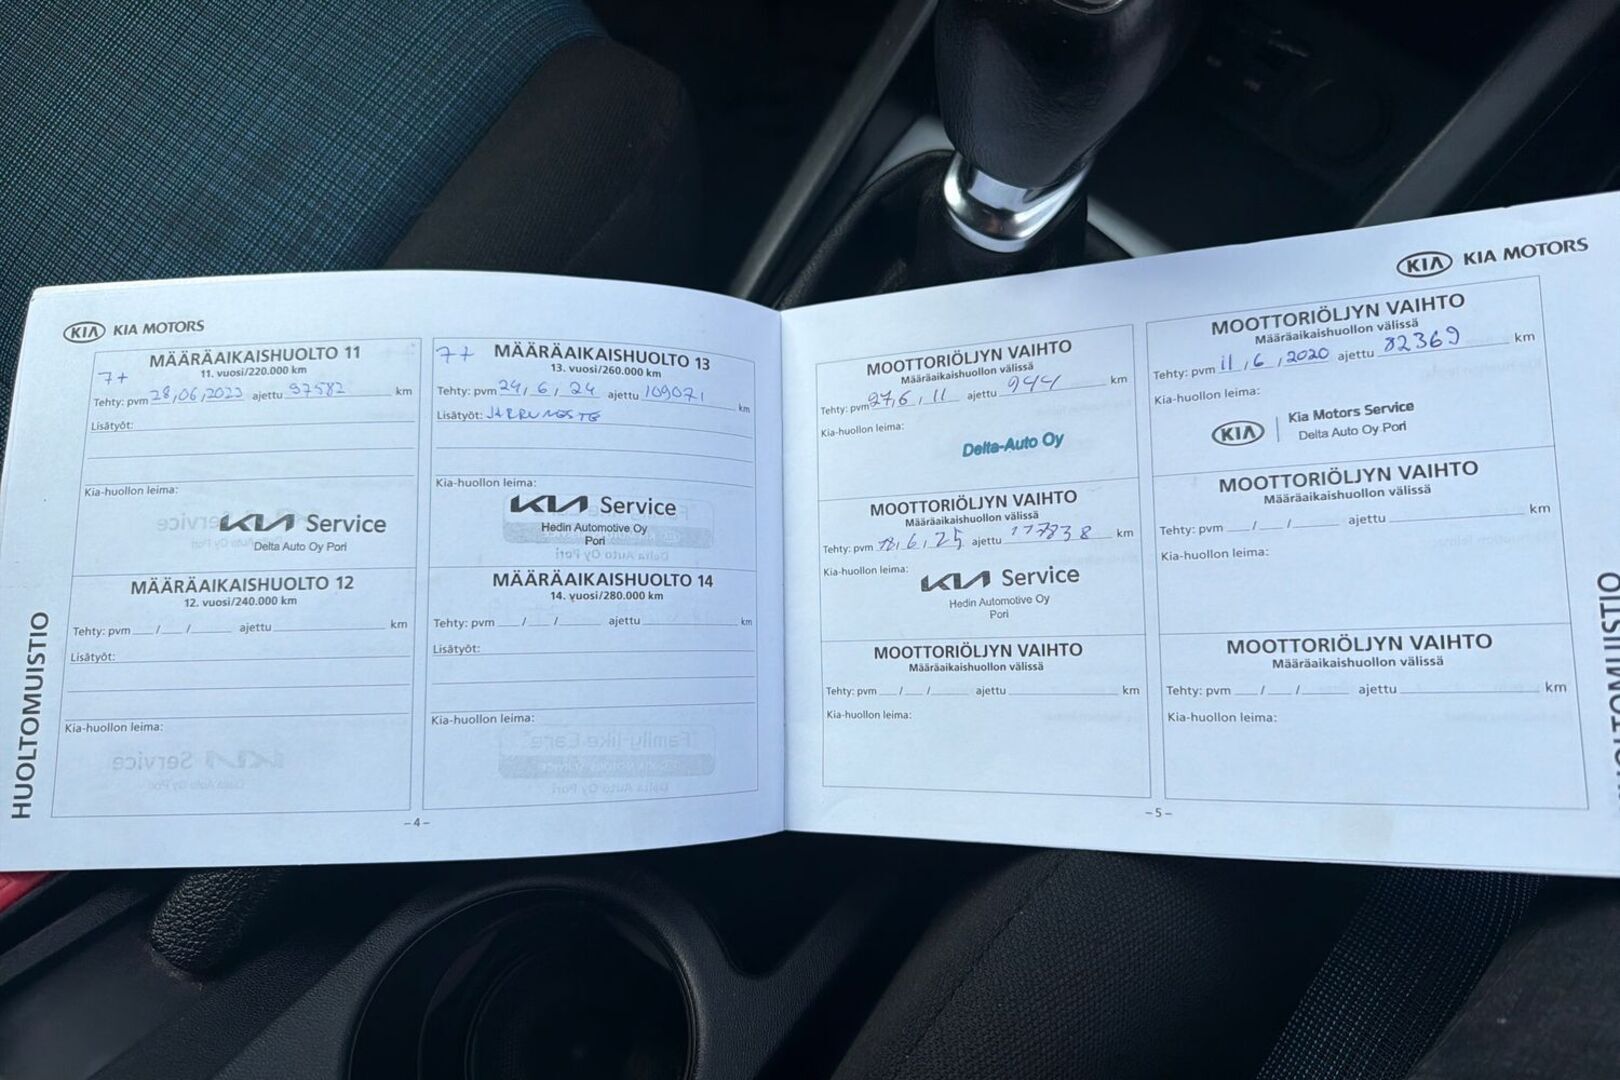 KIA KIA MOTORS
MÄÄRÄAIKAISHUOLTO 11
11. vuosi/220.000 km
7+
Tehty: pvm 28,06,2023 ajettu 97582 km
Lisätyöt:
Kia-huollon leima:
KIA Service
Delta Auto Oy Pori
MÄÄRÄAIKAISHUOLTO 12
12. vuosi/240.000 km
Tehty: pvm __/__/____ ajettu ____ km
Lisätyöt:
Kia-huollon leima:
7+
MÄÄRÄAIKAISHUOLTO 13
13. vuosi/260.000 km
Tehty: pvm 24, 6, 24 ajettu 109071 km
Lisätyöt: JARRUNESTE
Kia-huollon leima:
KIA Service
Hedin Automotive Oy
Pori
MÄÄRÄAIKAISHUOLTO 14
14. vuosi/280.000 km
Tehty: pvm __/__/____ ajettu ____ km
Lisätyöt:
Kia-huollon leima:
HUOLTOMUISTIO
–4–
MOOTTORIÖLJYN VAIHTO
Määräaikaishuollon välissä
Tehty: pvm 27,6,11 ajettu 944 km
Kia-huollon leima:
Delta-Auto Oy
MOOTTORIÖLJYN VAIHTO
Määräaikaishuollon välissä
Tehty: pvm 18,6,25 ajettu 117838 km
Kia-huollon leima:
KIA Service
Hedin Automotive Oy
Pori
MOOTTORIÖLJYN VAIHTO
Määräaikaishuollon välissä
Tehty: pvm __/__/____ ajettu ____ km
Kia-huollon leima:
KIA KIA MOTORS
MOOTTORIÖLJYN VAIHTO
Määräaikaishuollon välissä
Tehty: pvm 11,6,2020 ajettu 82369 km
Kia-huollon leima:
KIA Kia Motors Service
Delta Auto Oy Pori
MOOTTORIÖLJYN VAIHTO
Määräaikaishuollon välissä
Tehty: pvm __/__/____ ajettu ____ km
Kia-huollon leima:
MOOTTORIÖLJYN VAIHTO
Määräaikaishuollon välissä
Tehty: pvm __/__/____ ajettu ____ km
Kia-huollon leima:
–5–
HUOLTOMUISTIO